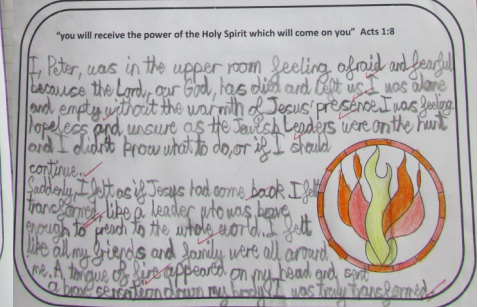 "you will receive the power of the Holy Spirit which will come on you" Acts 1:8
I, Peter, was in the upper room feeling afraid and fearful
because the Lord, our God, has died and left us. I was alone
and empty without the warmth of Jesus' presence. I was feeling
hopeless and unsure as the Jewish Leaders were on the hunt
and I didn't know what to do, or if I should
continue..
Suddenly, I felt as if Jesus had come back. I felt
transformed, like a leader who was brave
enough to preach to the whole world. I felt
like all my friends and family were all around
me. A tongue of fire appeared on my head and sent
a brave sensation down my body! I was truly transformed